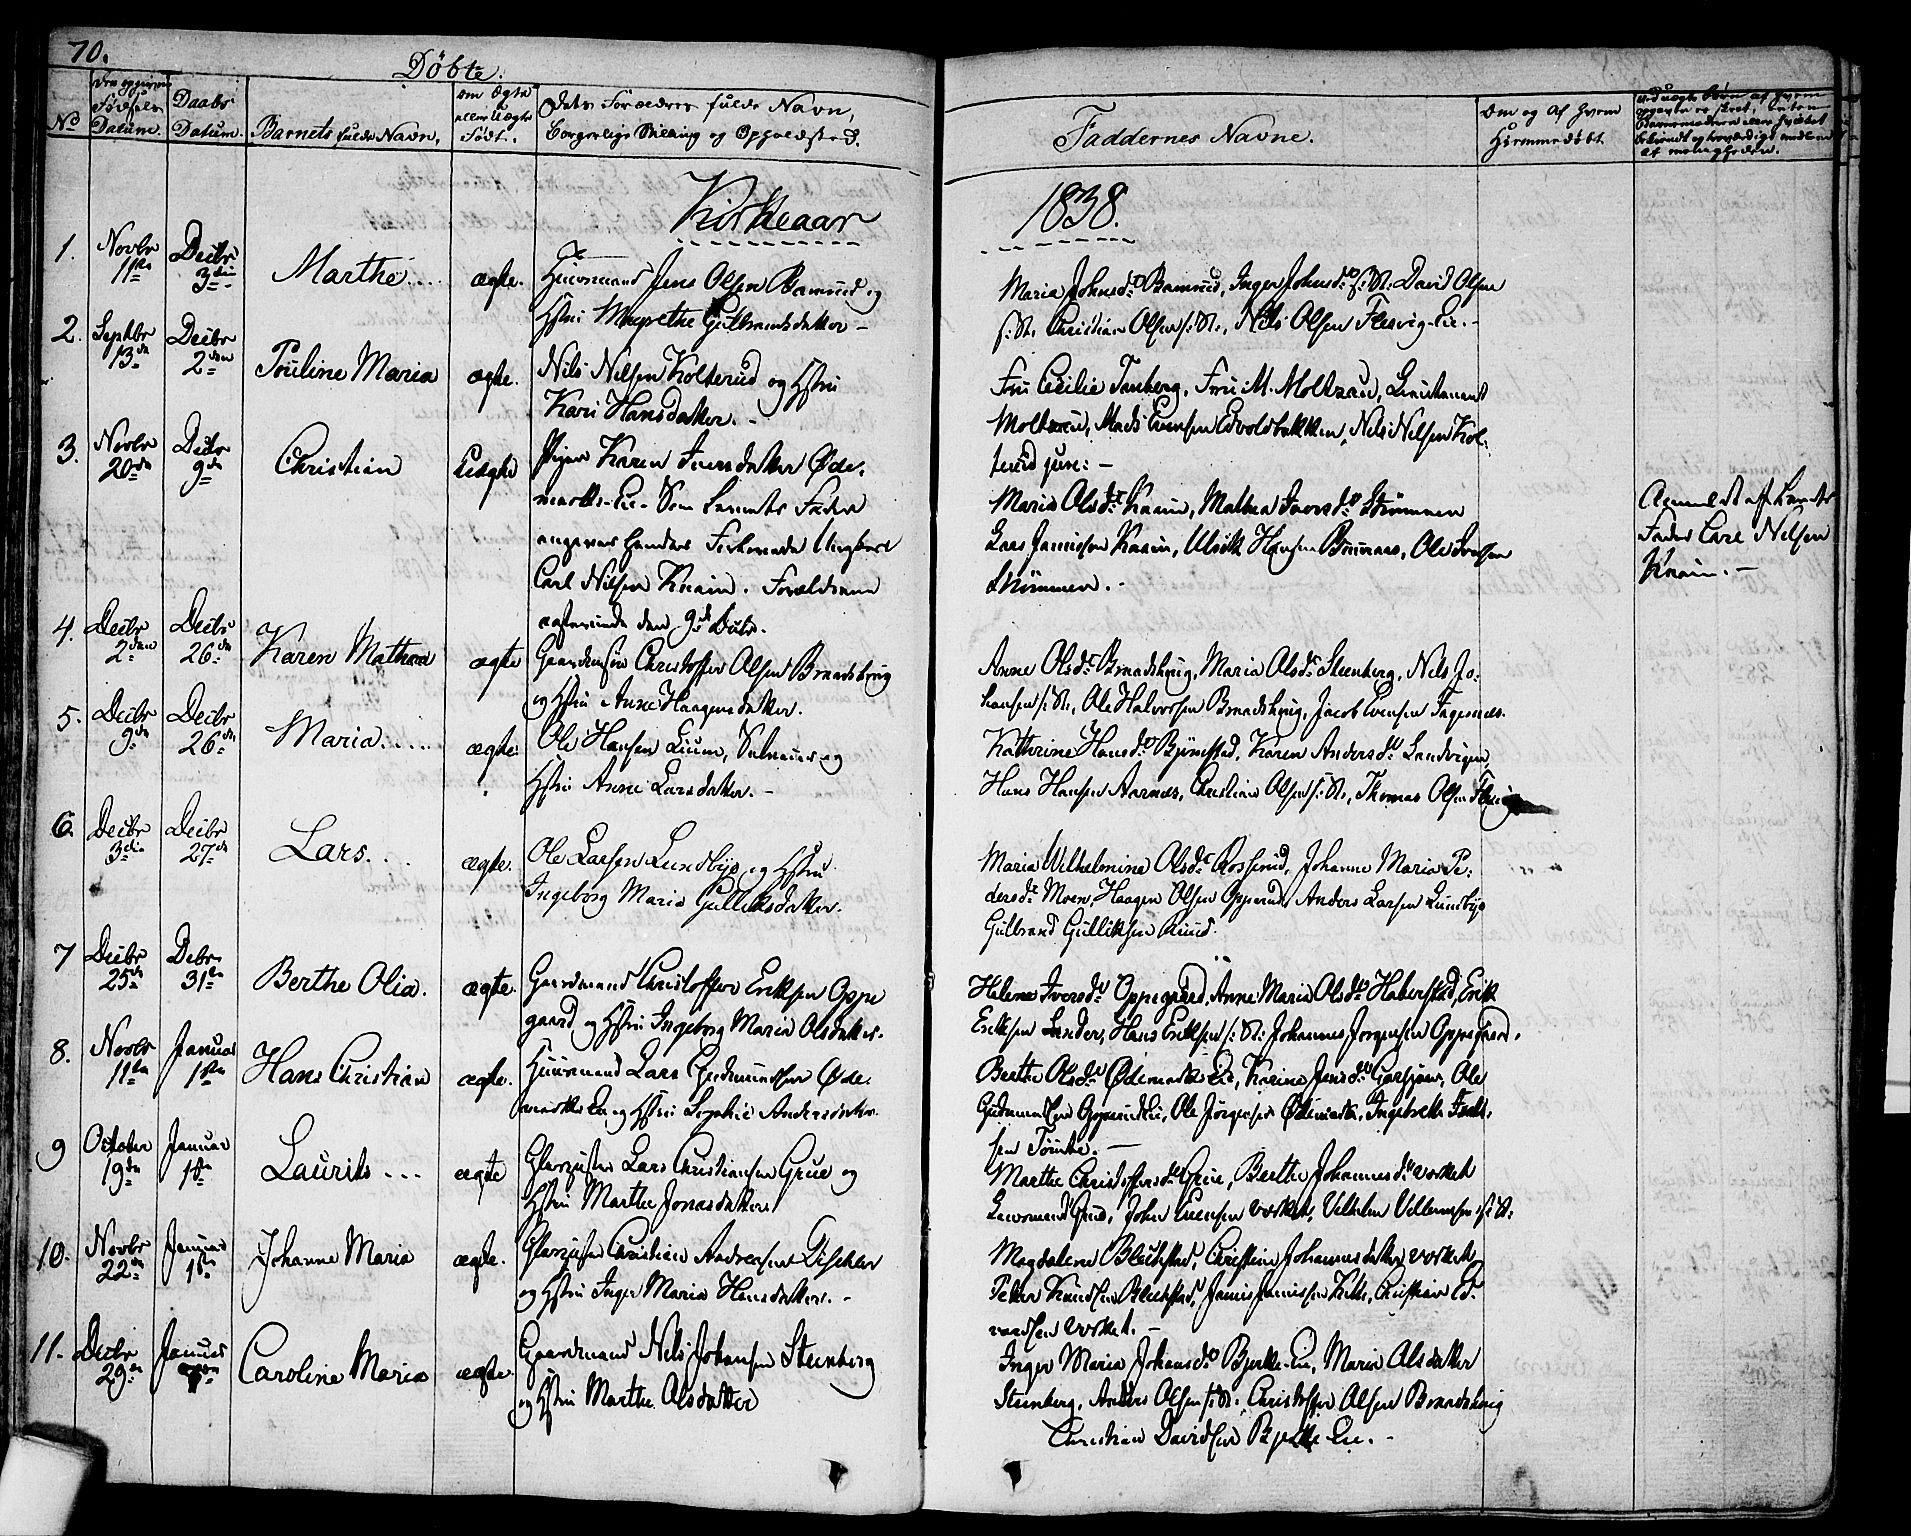 70.
Döbte.
No
Fødsels Datum.
Daabs Datum.
Barnets fulde Navn.
om Ægte eller Uægte Født.
Dets Forældres fulde Navn,
Borgerlige Stilling og Opholdsted.
Faddernes Navne.
Om og Af hvem
Hjemmedøbt
Kirkeaar 1838.
1. Novbr 11te Decbr 3die Marthe.... ægte. Huusmand Jens Olsen Ramsrud og
Hstru Magrethe Gulbrandsdatter -
Maria Johnsd: Ramsrud, Inger Johnsd: s: St: David Olsen
s: St: Christian Olsen s: St:, Nils Olsen Flesvig-Eie. -
2. Septbr 13de Decbr 2den Pouline Maria ægte. Nils Nilsen Kolterud og Hstru
Kari Hansdatter. -
Fru Cecilie Tanberg, Fru M. Moltzau, Lieutenant
Moltzau, Mads Evensen Edvoldsbakken, Nils Nilsen Kol-
terud jun: -
3. Novbr 20de Decbr 9de Christian Uægte Pigen Karen Iversdatter Øde-
marks-Eie. Som Barnets Fader
angives hendes Forlovede Ungkarl
Carl Nilsen Knain. Forældrene
ægteviede den 9de Decbr.
Maria Olsd: Knain, Mathea Iversd: Strømmen
Lars Jamissen Knain, Ulrik Hansen Bruraas, Ole Iversen
Strømmen. -
Anmeldt af Barnets
Fader Carl Nilsen
Knain. -
4. Decbr 2den Decbr 26de Karen Mathea ægte Gaardmand Christoffer Olsen Braadshoug
og Hstru Anne Haagensdatter.
Anne Olsd: Braadshoug, Maria Olsd: Steenberg, Nils Jo-
hansen s: St:, Ole Halvorsen Braadshoug, Jacob Evensen Fagernæs.
5. Decbr 9de Decbr 26de Maria..... ægte. Ole Hansen Lium, Salmager og
Hstru Anne Larsdatter. -
Kathrine Hansd: Bjønstad, Karen Andersd: Sandvigen,
Hans Hansen Aarnæs, Christian Olsen s: St:, Thomas Olsen
6. Decbr 3die Decbr 27de Lars.... ægte. Ole Larsen Lundbye og Hstru
Ingeborg Maria Gulliksdatter.
Maria Wilhelmine Olsd: Rosserud, Johanne Maria Pe-
dersd: Moen, Haagen Olsen Opperud, Anders Larsen Lundbye
Gulbrand Gulliksen Ruud.
7 Decbr 25de Debr. 31te Berthe Olia. ægte. Gaardmand Christoffer Eriksen Oppe
gaard og Hstru Ingeborg Maria Olsdatter.
Helene Iversd: Oppegaard, Anne Maria Olsd: Haberstad, Erik
Eriksen Sander, Hans Eriksen s: St: Johannes Jørgensen Oppegaard.
8. Novbr 11te Januar 1ste Hans Christian ægte. Huusmand Lars Gudmundsen Øde-
marks Eie og Hstru Sophie Andersdatter.
Berthe Olsd: Ødemarks Eie, Karine Jensd: Garsjøen, Ole
Gudmundsen Opperud Eie, Ole Jørgensen Ødemark, Ingebreth
sen Tømte. -
9 October 19de Januar 1ste Laurits ... ægte Glaspuster Lars Christiansen Grue og
Hstru Marthe Jonasdatter
Marthe Christoffersd: Grue, Berthe Johannesd: Værket
Grue, John Evensen Værket, Vilhelm Villemsen s: St:
10. Novbr 22de Januar 1ste Johanne Maria ægte. Glaspuster Christian Andreasen Discher
og Hstru Inger Maria Hansdatter. -
Magdalene Blekstad, Christine Johannesdatter Værket,
Peder Knudsen Blekstad, Jamis Jamissen Kilb, Christian Ed-
vardsen Værket. -
11. Decbr 29de Januar Caroline Maria ægte. Gaardmand Nils Johansen Steenberg
og Hstru Marthe Olsdatter
Inger Maria Johansd: Bjerke-Eie, Maria Olsdatter
Steenberg, Anders Olsen s: St:, Christoffer Olsen Braadshoug
Christian Davidsen Bjerke Eie. -